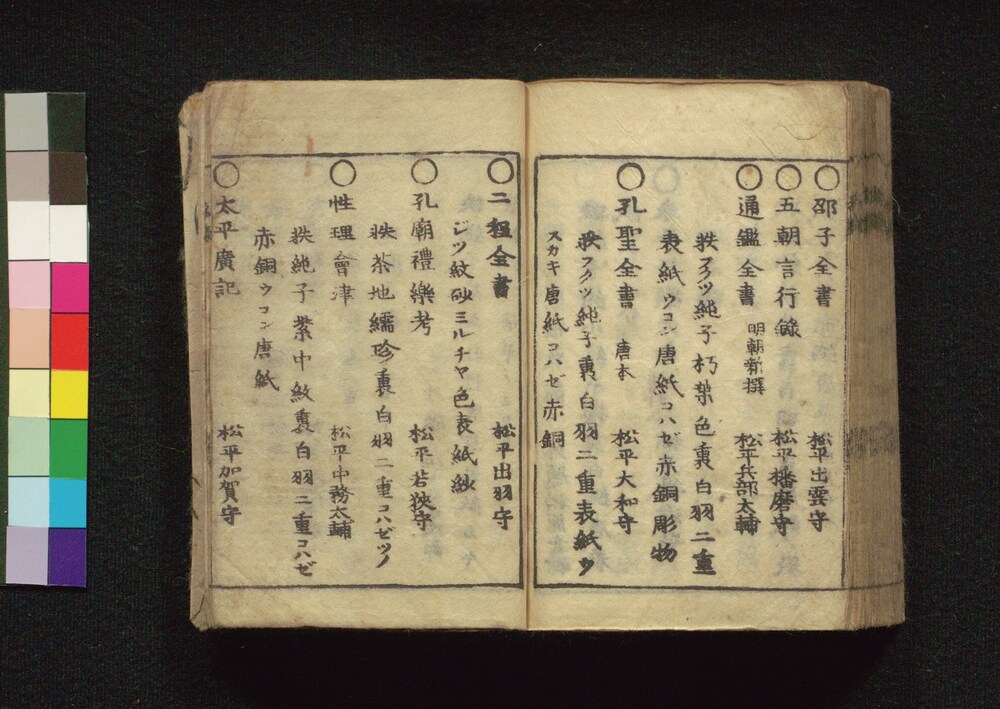 〇邵子全書 松平出雲守
〇五朝言行錄 松平播磨守
〇通鑑全書 明朝新撰 松平兵部太輔
帙フクツ純子朽葉色裏白羽二重
表紙ウコン唐紙コハゼ赤銅彫物
〇孔聖全書 唐本 松平大和守
帙フクツ純子裏白羽二重表紙ウ
スカキ唐紙コハゼ赤銅
〇二程全書 松平出羽守
ジツ紋砂ミルチヤ色表紙紗
〇孔廟禮樂考 松平若狹守
帙茶地繻珍裏白羽二重コハゼツノ
〇性理會津 松平中務太輔
帙純子紫中紋裏白羽二重コハゼ
赤銅ウコン唐紙
〇太平廣記 松平加賀守